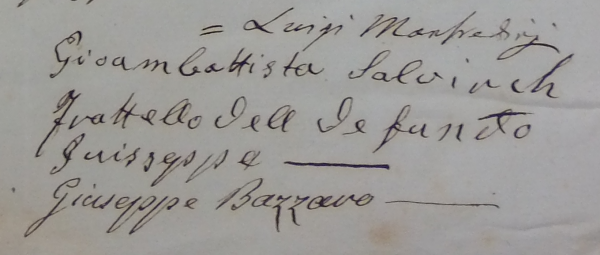 = Luigi Manfredinj
Gioambattista Salvirch
Frattello dell defunto
Juisseppe
Giuseppe Bazzaro